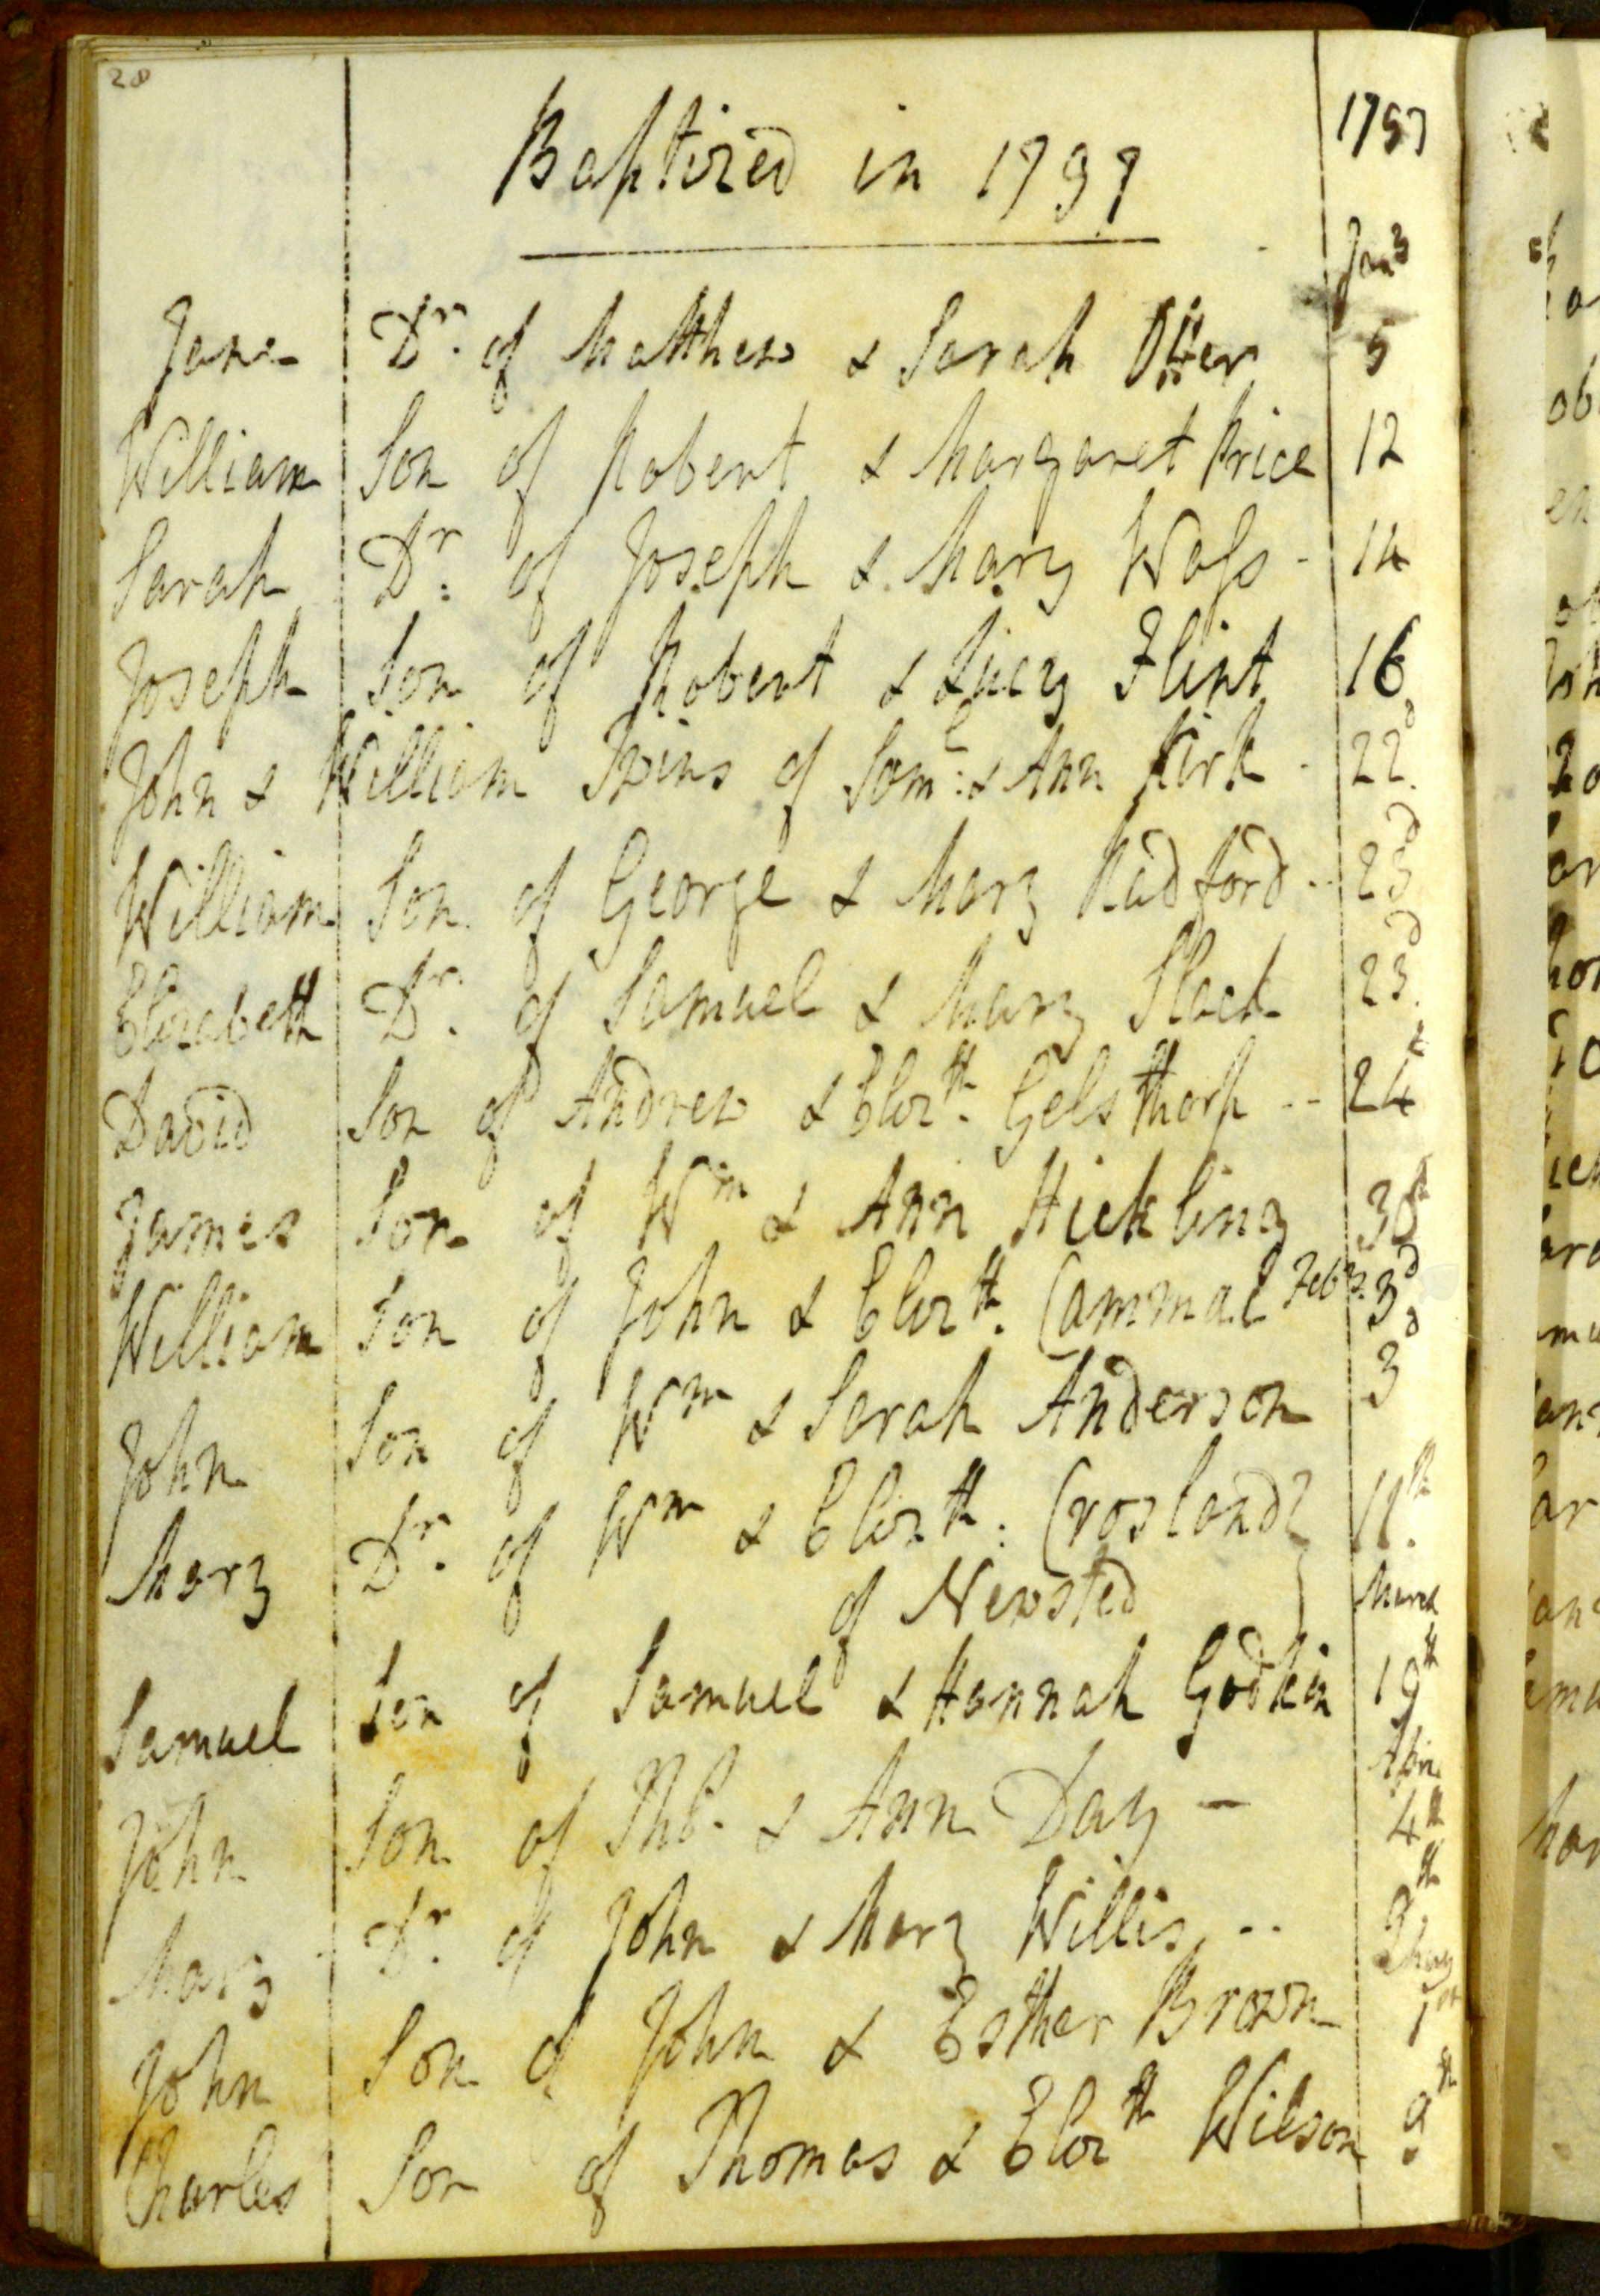 28
1797
Baptized in 1797
Jany
Jane Dr. of Matthew & Sarah Otter 5
William Son of Robert & Margaret Price 12
Sarah Dr: of Joseph & Mary Wass - 14
Joseph Son of Robert & Lucy Flint 16
John & William Twins of Saml: & Ann Kirk - 22d
William Son of George & Mary Radford -- 23d
Elizabeth Dr. of Samuel & Mary Slack 23d
David Son of Andrew & Elizth. Gelsthorp -- 24th
James Son of Wm & Ann Hickling 30th
William Son of John & Elizth. Cammal Feby. 3d
John Son of Wm & Sarah Anderson 3d
Mary Dr. of Wm & Elizth. Crosland 11th.
of Newsted March
Samuel Son of Samuel & Hannah Godkin 19th
Apri
John Son of Ths. & Ann Day - 4th
Mary Dr. of John & Mary Willis -- 9th
May
John Son of John & Esther Brown 1st
Charles Son of Thomas & Elizth Wilson 9th